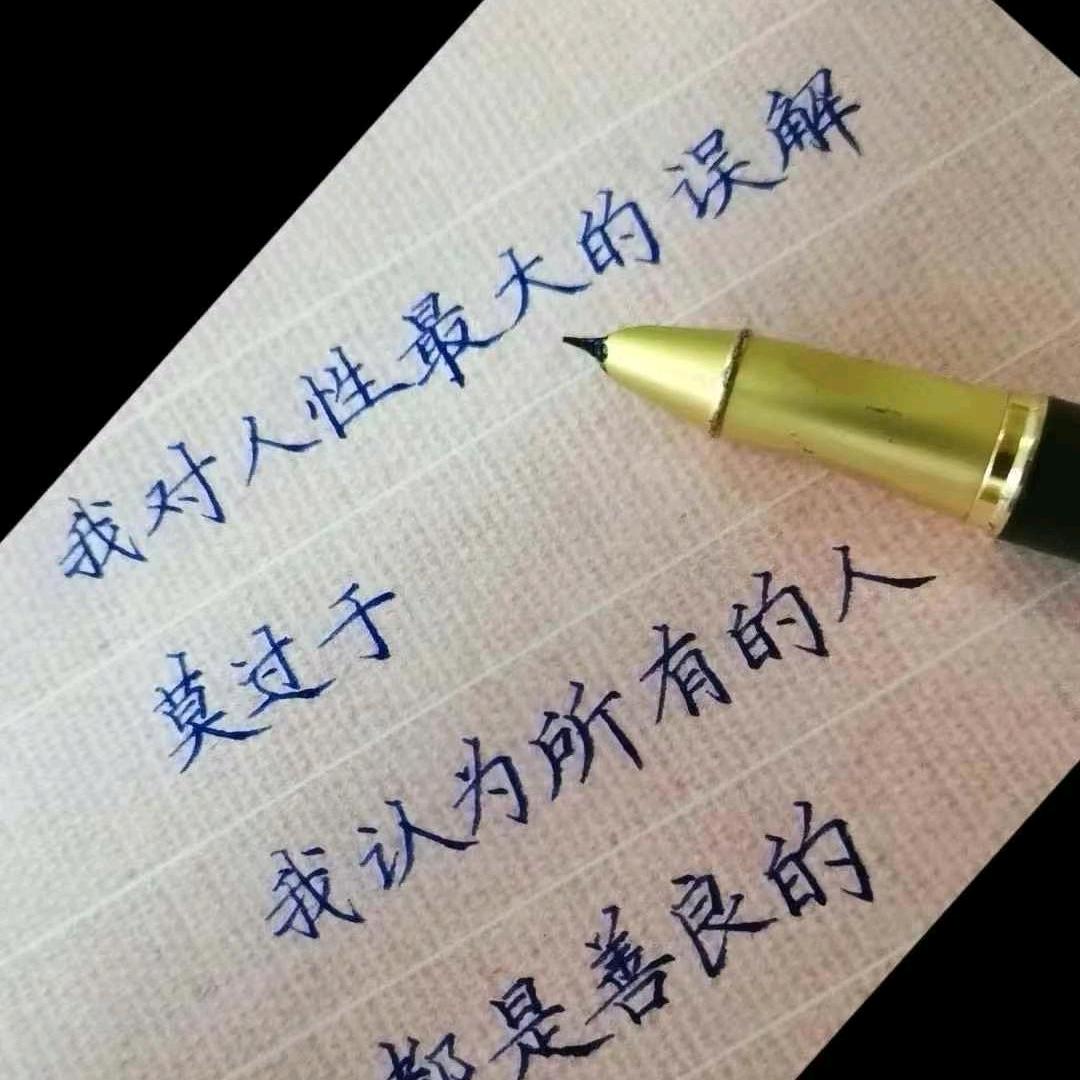 我对人性最大的误解
莫过于
我认为所有的人
都是善良的